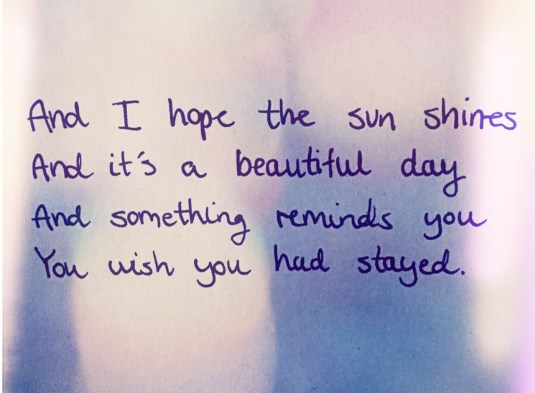 And I hope the sun shines
And it's a beautiful day
And something reminds you
You wish you had stayed.